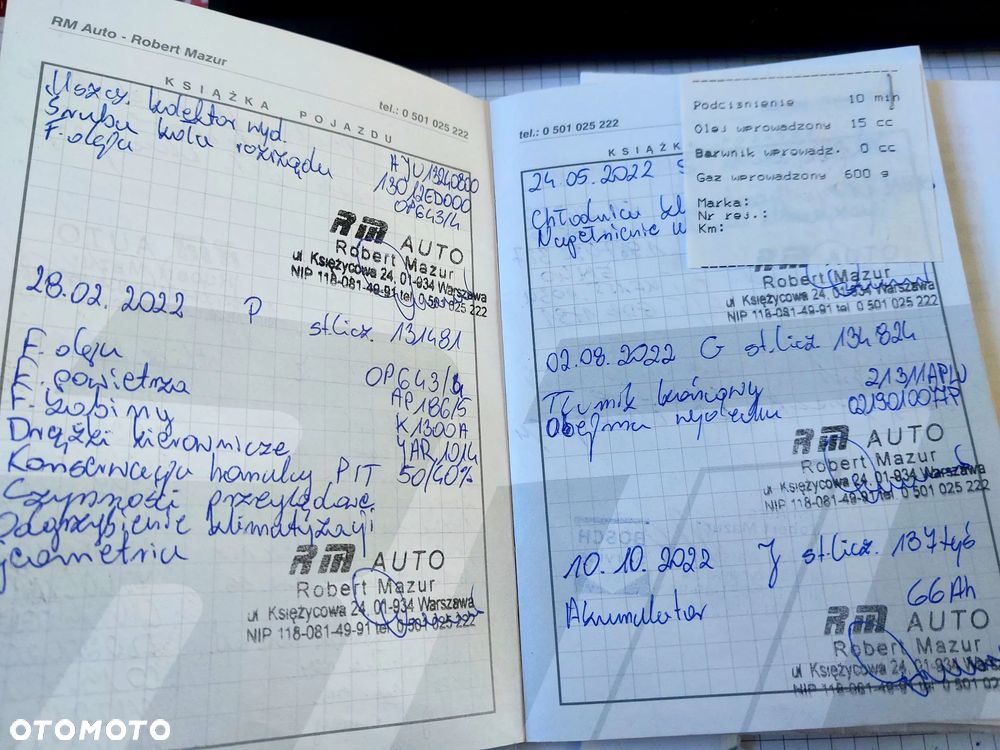 RM Auto - Robert Mazur
tel.: 0 501 025 222
KSIĄŻKA POJAZDU
Uszcz. kolektor wyd. AJU13240800
Śruba koła rozrządu 13012ED000
F. oleju OP643/4
RM AUTO
Robert Mazur
ul Księżycowa 24, 01-934 Warszawa
NIP 118-081-49-91 tel 0 501 025 222
28.02.2022 P st.licz. 131481
F. oleju OP643/4
F. powietrza AP186/5
F. kabiny K1300A
Drążki kierownicze JAR1014
Konserwacja hamulcy P i T 50/40%
Czynności przeglądowe
Odgrzybienie klimatyzacji
geometria
RM AUTO
Robert Mazur
ul Księżycowa 24, 01-934 Warszawa
NIP 118-081-49-91 tel 0 501 025 222
tel.: 0 501 025 222
KSIĄŻK
24.05.2022 S
Chłodnica kl
Napełnienie u
Podciśnienie 10 min
Olej wprowadzony 15 cc
Barwnik wprowadz. 0 cc
Gaz wprowadzony 600 g
Marka:
Nr rej.:
Km:
Robert Mazur
ul Księżycowa 24, 01-934 Warszawa
NIP 118-081-49-91 tel 0 501 025 222
02.08.2022 G st.licz. 134824
Tłumik końcowy 21311APW
Obejma wydechu
RM AUTO
Robert Mazur
ul Księżycowa 24, 01-934 Warszawa
NIP 118-081-49-91 tel 0 501 025 222
BOSCH
10.10.2022 J st.licz. 137tyś
Akumulator 66Ah
RM AUTO
Robert Mazur
ul Księżycowa 24, 01-934 Warszawa
NIP 118-081-49-91 tel 0 501 02
OTOMOTO